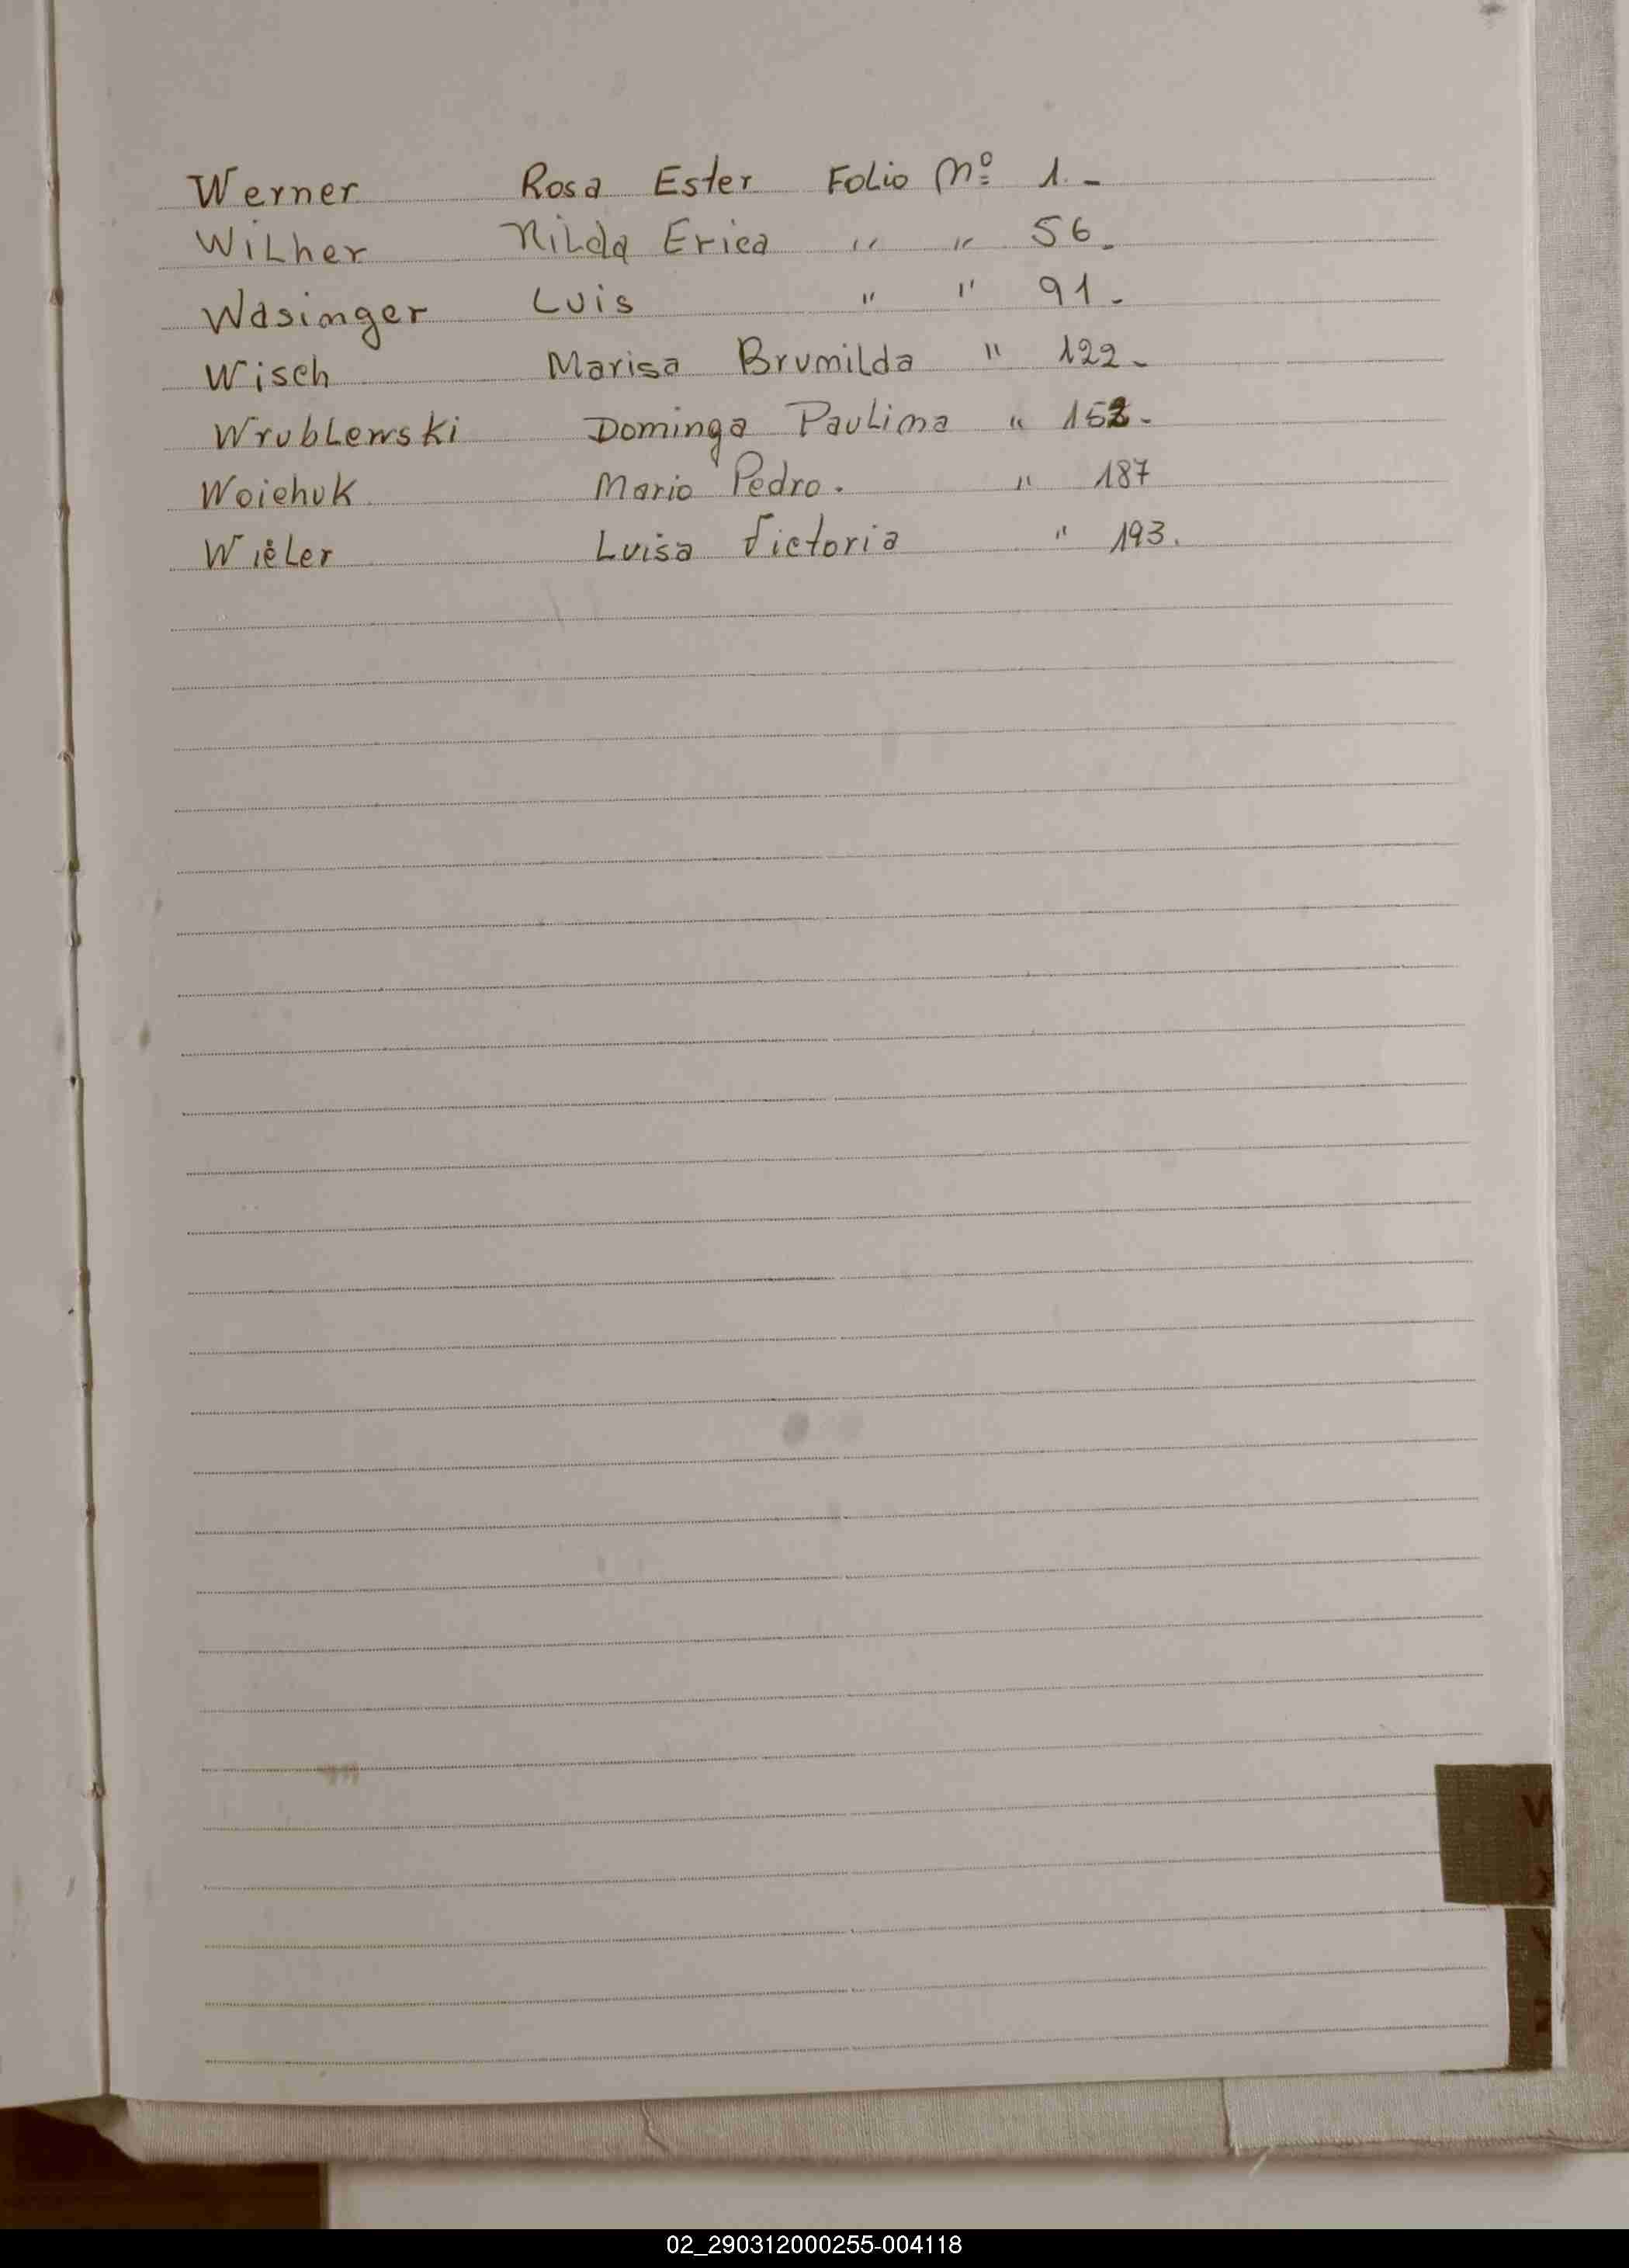 Werner Rosa Ester Folio Nº 1.-
Wilher Nilda Erica " " 56.-
Wasinger Luis " " 91.-
Wisch Marisa Brunilda " 122.-
Wrublewski Dominga Paulina " 152.-
Woichuk Mario Pedro. " 187
Wieler Luisa Victoria " 193.
W
X
Y
Z
02_290312000255-004118